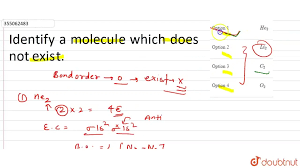 355062483
Identify a molecule which does not exist.
Option 1 He₂
Option 2 Li₂
Option 3 C₂
Option 4 O₂
Bond order → 0 → exist → X
(1)
2 × 2 = 4E
Anti
E.C =
doubtnut